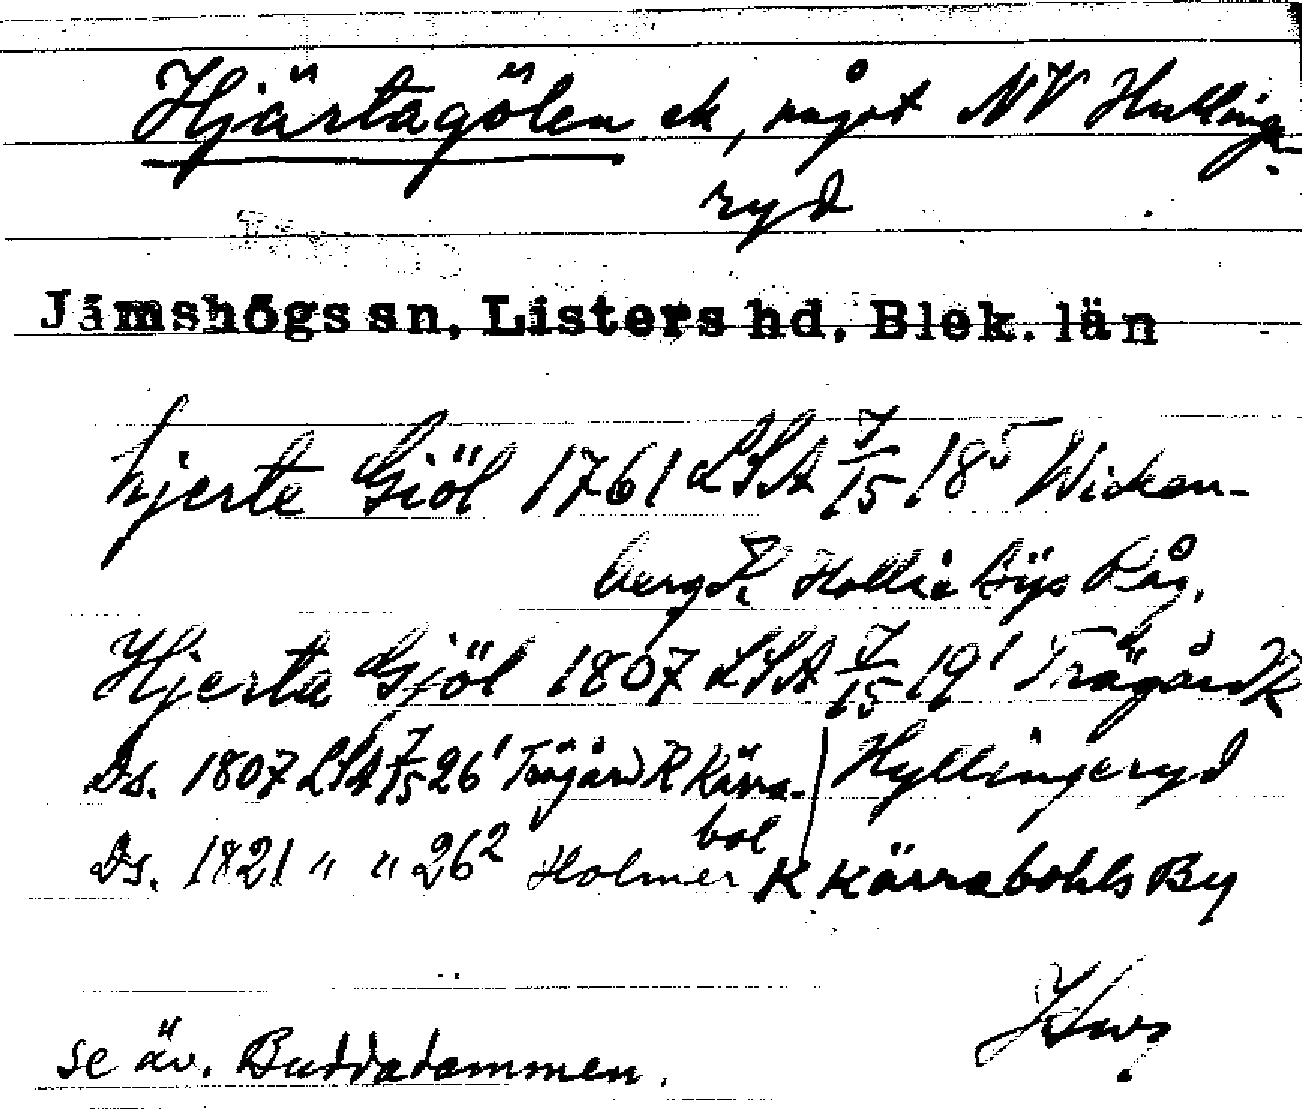 Hjärtagölen ek, något NV Hulling-
ryd
Jämshögs sn, Listers hd, Blek. län
hjerte Giöl 1761 LSA 7/15 18⁵ Wicken-
berg K Hollie Bÿs Råg.
Hjerta Gjöl 1807 LSA 7/15 19¹ Trägård K
Hyllingeryd
Ds. 1807 LSA 7/15 26¹ Trägård K Kärra-
bol
Ds. 1821 " " 26² Holmer K Kärrabohls By
se äv. Buddadammen.